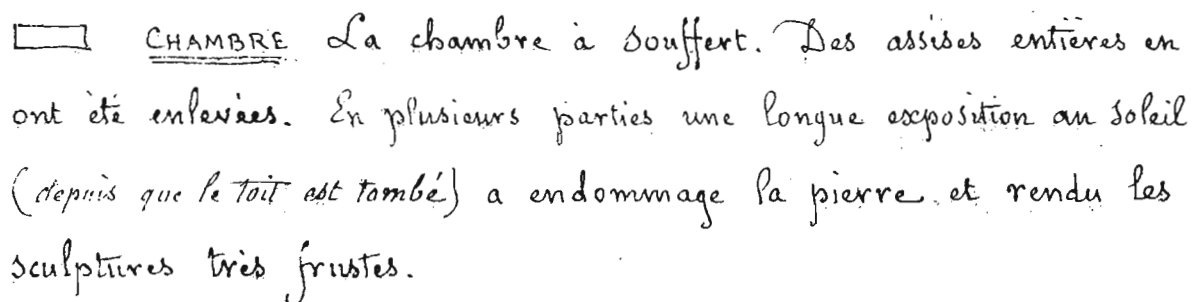 CHAMBRE La chambre à souffert. Des assises entières en
ont été enlevées. En plusieurs parties une longue exposition au soleil
(depuis que le toit est tombé) a endommage la pierre et rendu les
sculptures très frustes.